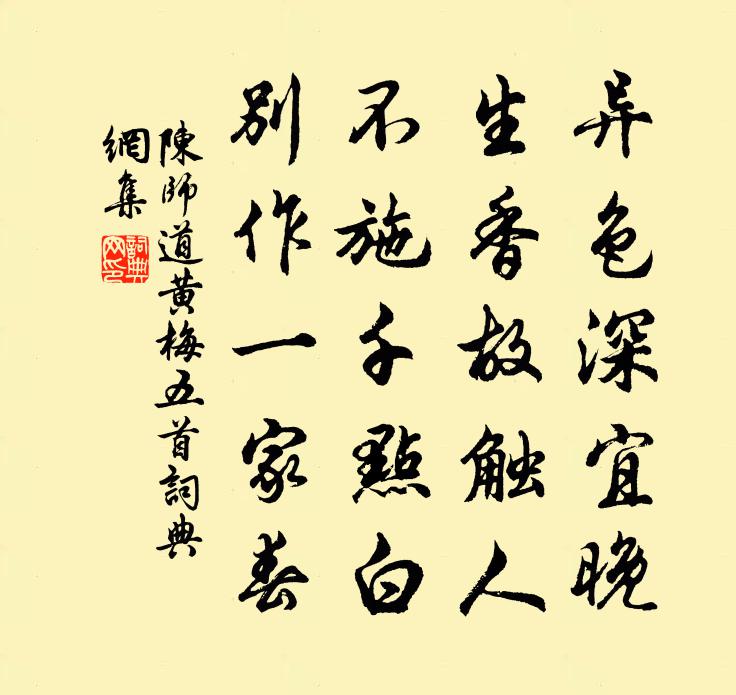 异色深宜晚
生香故触人
不施千點白
别作一家春
陳師道黄梅五首詞典
網集
詞典
网印